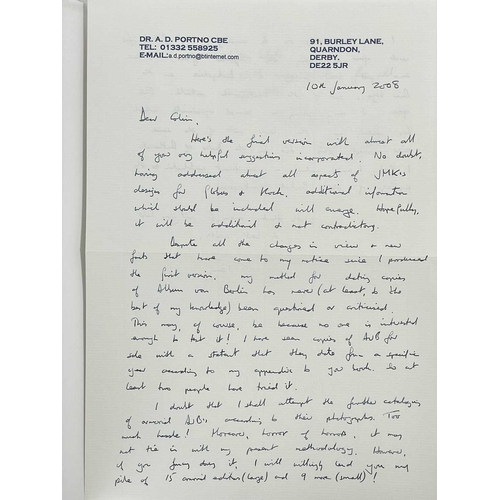 DR. A. D. PORTNO CBE
TEL: 01332 558925
E-MAIL: a.d.portno@btinternet.com
91, BURLEY LANE,
QUARNDON,
DERBY.
DE22 5JR
10th January 2008
Dear Colin,
Here's the final version with almost all
of your very helpful suggestions incorporated. No doubt,
having addressed about all aspects of JMK's
designs for Globus & Koch, additional information
which should be included will emerge. Hopefully,
it will be additional & not contradictory.
Despite all the changes in view & new
facts that have come to my notice since I produced
the first version, my method for dating copies
of Album von Berlin has never (at least, to the
best of my knowledge) been questioned or criticised.
This may, of course, be because no one is interested
enough to test it! I have seen copies of AvB for
sale with a statement that they date from a specific
year according to my appendix to your work. So at
least two people have tried it.
I doubt that I shall attempt the further cataloguing
of armorial AvB's according to their photographs. Too
much hassle! Moreover, horror of horrors, it may
not tie in with my present methodology. However,
if you fancy doing it, I will willingly lend you my
pile of 15 armorial editions (large) and 9 more (small)!